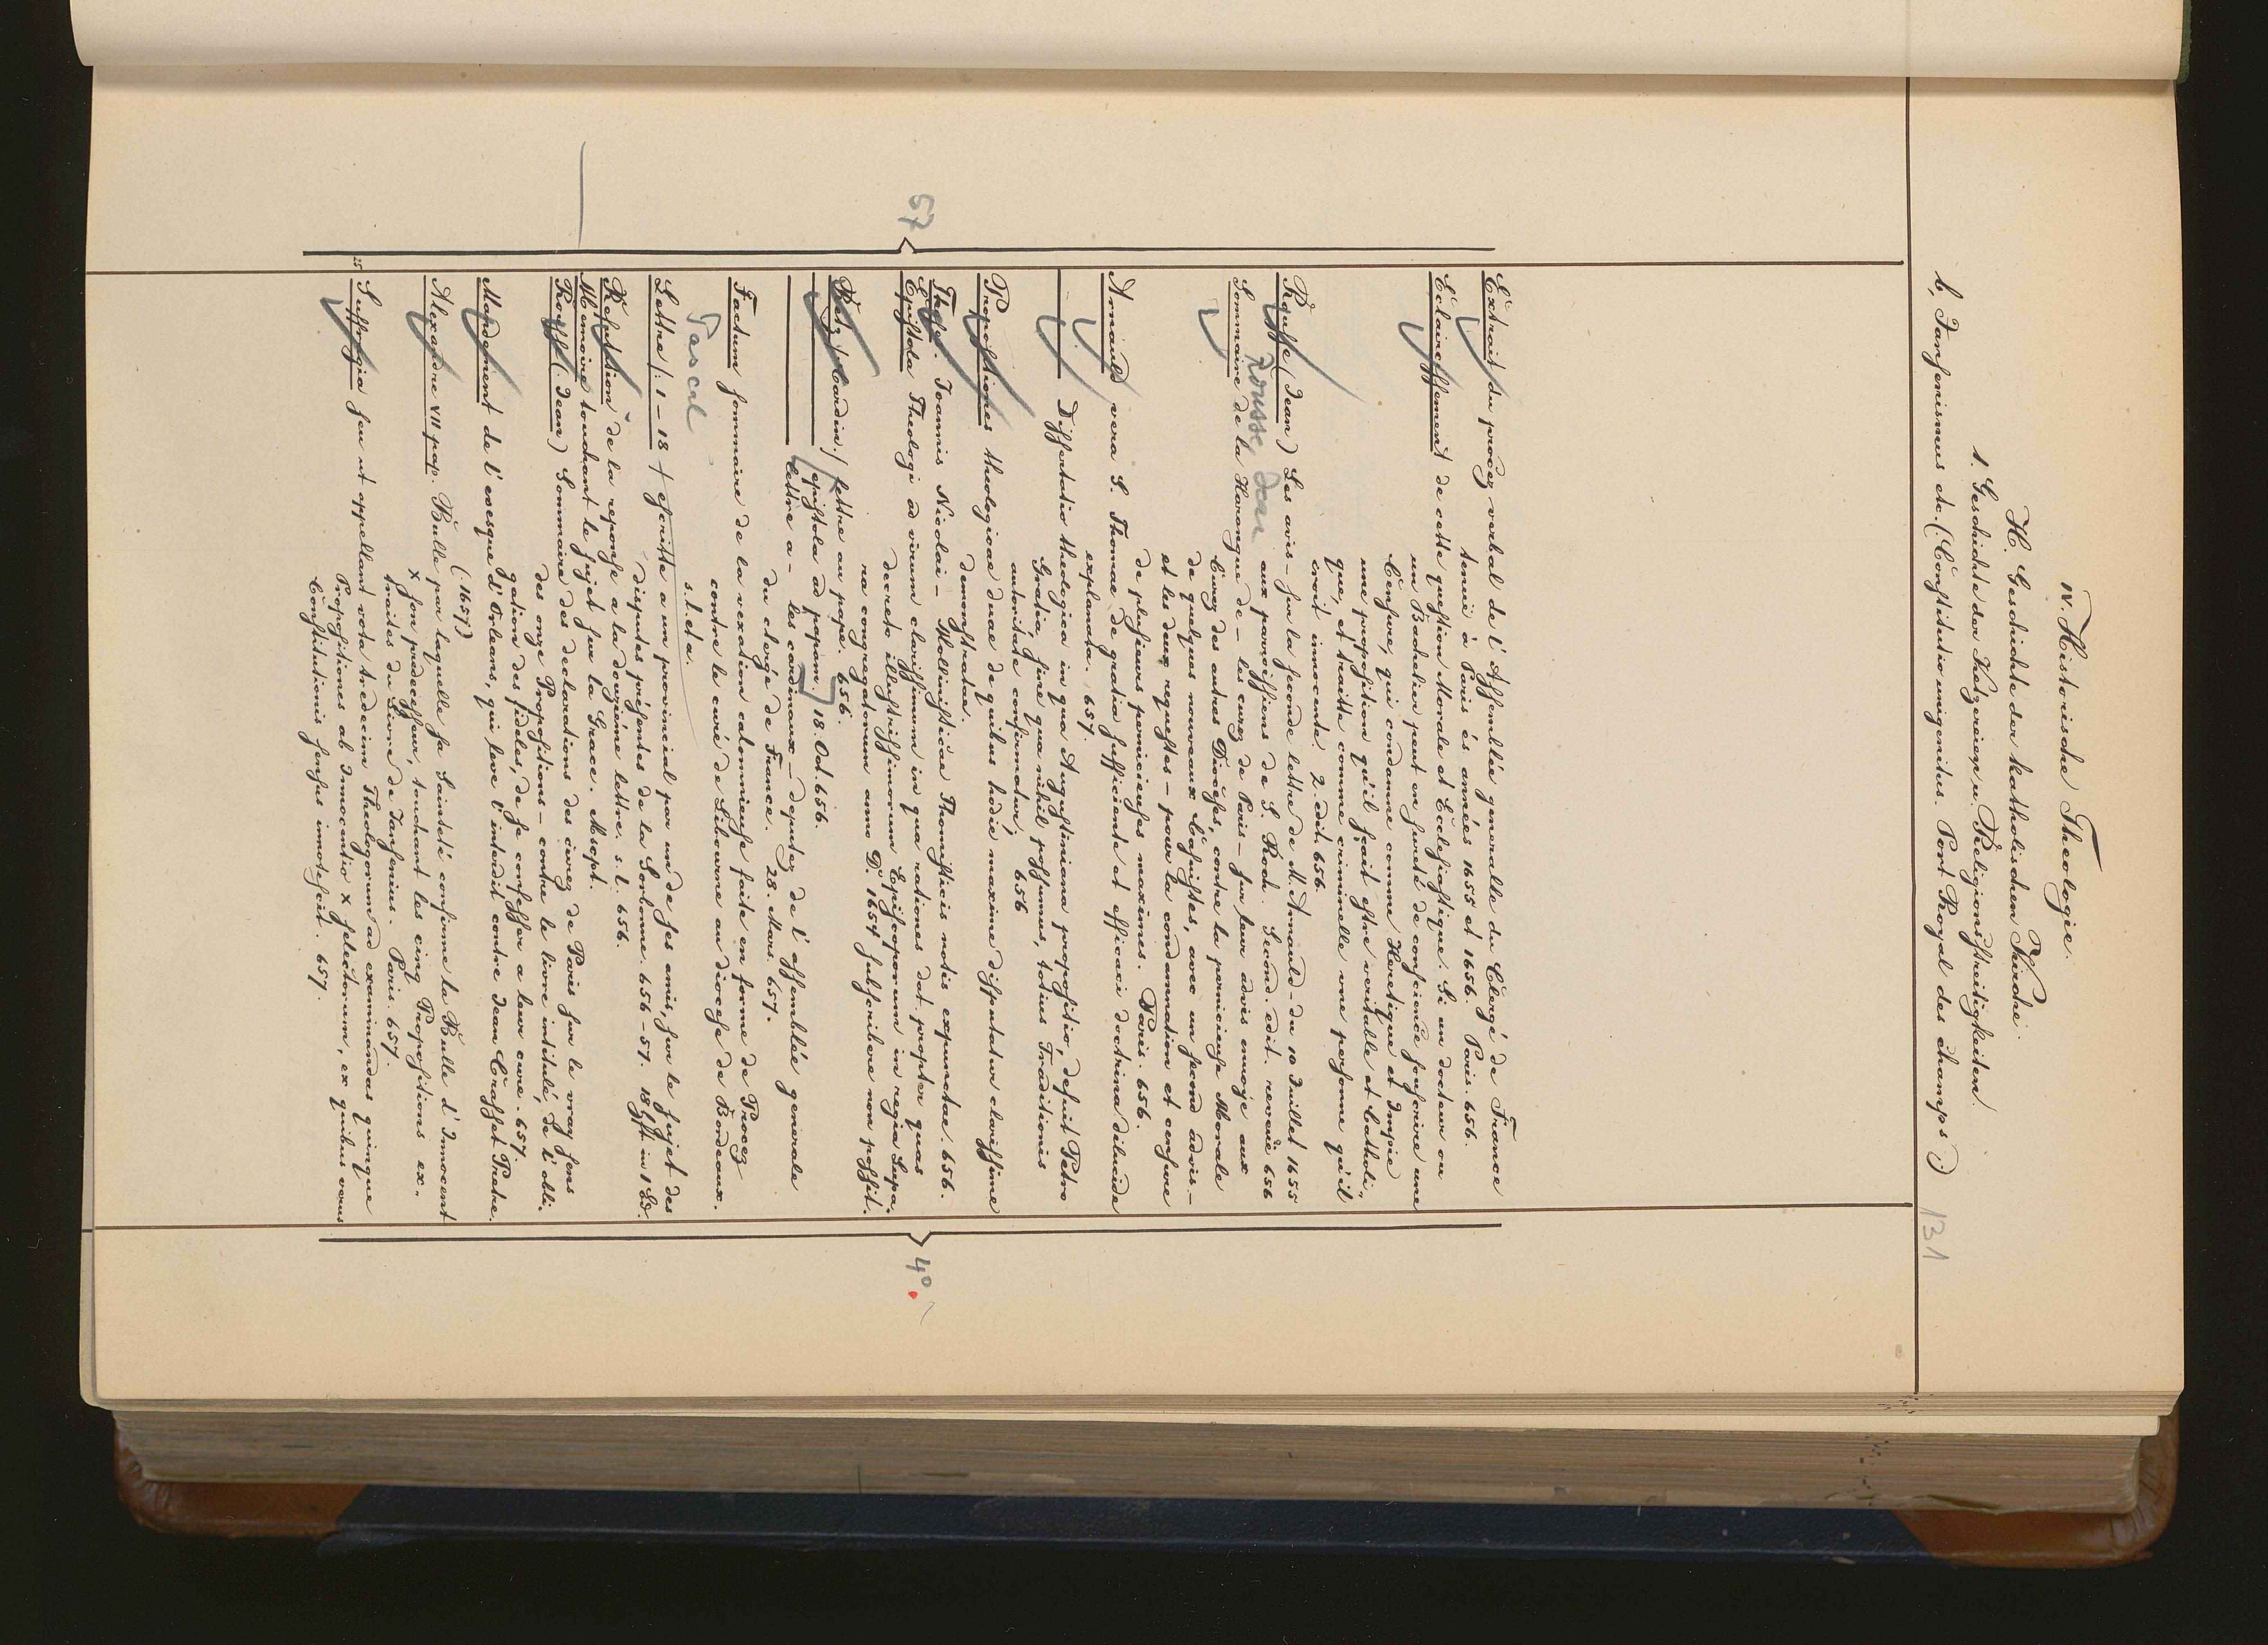 IV. Historische Theologie.
H. Geschichte der katholischen Kirche.
1. Geschichte der Ketzereien u. Religionsstreitigkeiten.
b, Jansenismus etc. (Constitutio unigenitus. Port Royal des champs.)
131
Extrait du procez verbal de l'Assemblée generalle du Clergé de France
tenuë à Paris és années 1655 et 1656. Paris. 656.
Eclaircissement de cette question Morale et Ecclesiastique. Si un docteur ou
un Bachelier peut en sureté de conscience souscrire une
Censure, qui condamne comme Heretique et Impie
une proposition qu'il sçait estre veritable et Catholi-
que, et traitte comme criminelle une personne qu'il
croit innocente. 2. edit. 656.
Rousse Jean
Rousse (Jean) Les avis - sur la seconde lettre de M. Arnauld - du 10 Juillet 1655
aux paroissiens de S. Roch. Second. edit. reveuë 656
Sommaire de la Harangue de - les curez de Paris - sur leur advis envoyé aux
Curez des autres Dioceses, contre la pernicieuse Morale
de quelques nouveaux Casuistes, avec un second advis -
et les deux requestes - pour la condamnation et censure
de plusieurs pernicieuses maximes. Paris. 656.
Arnauld vera S. Thomae de gratia sufficiente et efficaci doctrina dilucide
explanata. 657.
Dissertatio theologica in qua Augustiniana propositio, defuit Petro
Gratia, sine qua nihil possumus, totius Traditionis
autoritate confirmatur; 656
Propositiones theologicae duae de quibus hodie maxime disputatur clarissime
demonstratae.
Theses. Joannis Nicolai - Mollinisticae Thomisticis notis expunctae. 656.
Epistola Theologi ad virum clarissimum in qua rationes dat propter quas
decreto illustrissimorum Episcoporum in regia Lupa-
ra congregatorum anno D. 1654 subscribere non possit.
57
4º.
Retz /: Cardin :/ lettre au pape. 656.
epistola ad papam. 18. Oct. 656.
lettre a - les cardinaux - deputez de l'assemblée generale
du clergé de France. 28. Mars. 657.
Factum sommaire de la vexation calomnieuse faite en forme de Procez
contre le curé de Libourne au diocese de Bordeaux.
s. l. et a.
Pascal
Lettre /: 1 - 18 / escritte a un provincial par un de ses amis, sur le sujet des
disputes présentes de la Sorbonne. 656-57. 18 Hft in 1 Bd.
Refutation de la reponse a la douziéme lettre. s. l. 656.
Memoire touchant le sujet sur la Grace. Mscpt.
Rousse (Jean) Sommaire des declarations des curez de Paris sur le vray sens
des onze Propositions - contre le livre intitulé, de l'obli-
gation des fideles, de se confesser a leur cure. 657.
Mandement de l'evesque d'Orleans, qui leve l'interdit contre Jean Crasset Pretre.
(: 1657)
Alexandre VII pap. Bulle par laquelle sa Sainteté confirme la Bulle d'Innocent
X son predecesseur, touchant les cinq Propositions ex-
traites du Livre de Jansenius. Paris. 657.
25
Suffragia seu ut appellant vota tredecim Theologorum ad examinandas quinque
Propositiones ab Innocentio X selectorum, ex quibus verus
Constitutionis sensus innotescit. 657.